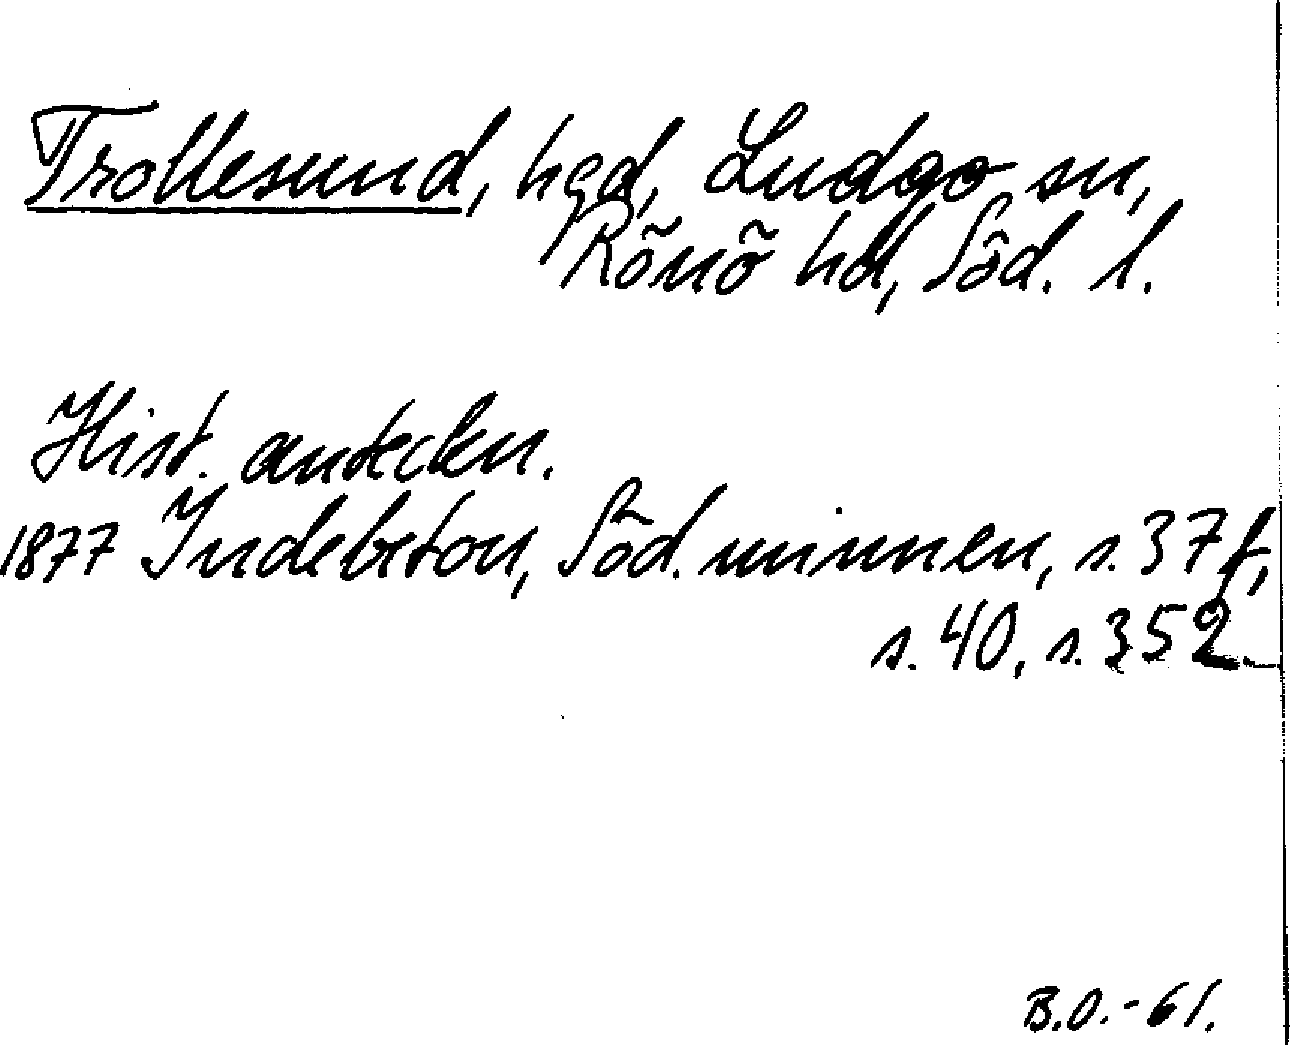 Trollesund, hgd, Ludgo sn,
Rönö hd, Söd. l.
Hist. anteckn.
1877 Indebetou, Söd. minnen, s. 37 f,
s. 40, s. 352
B.O.-61.